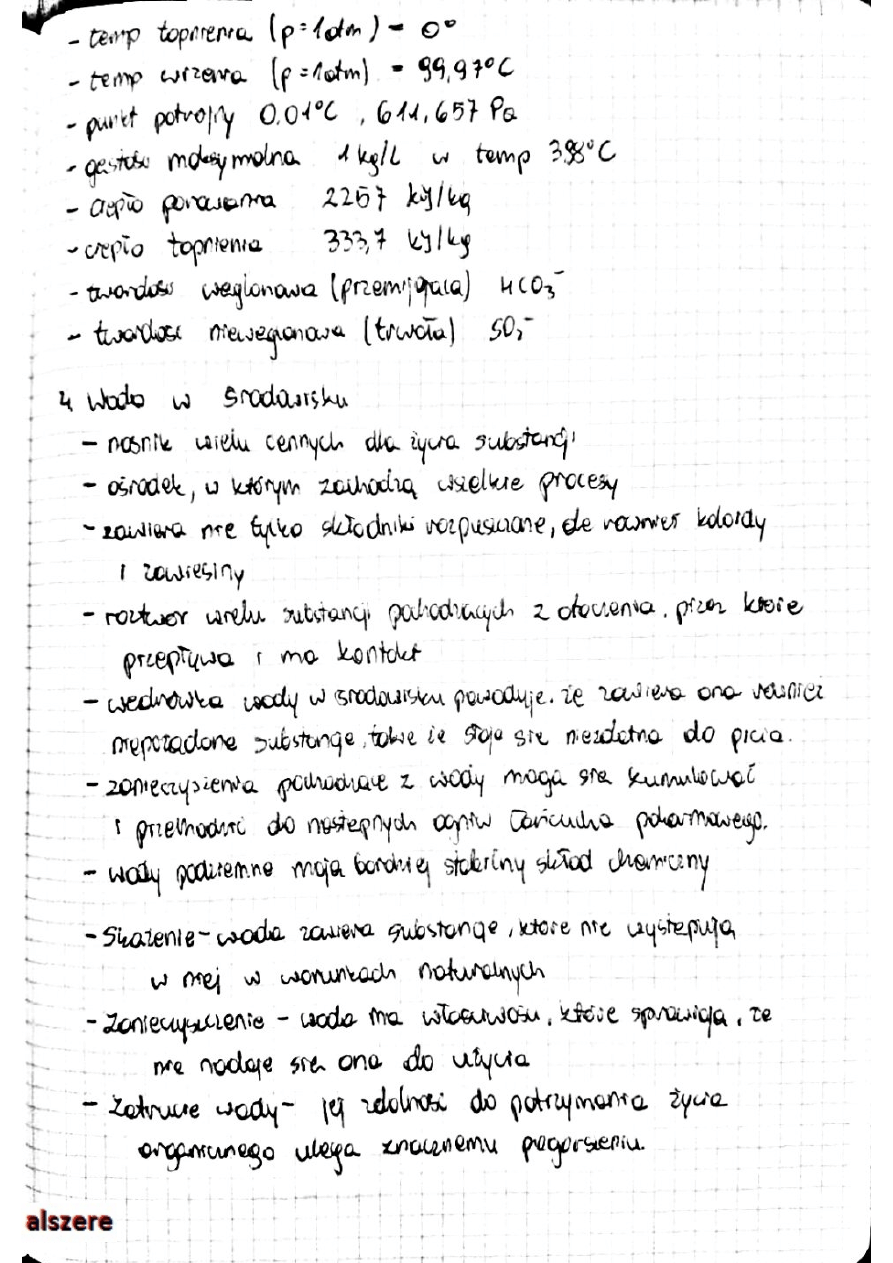 - temp topnienia (p=1atm) = 0°
- temp wrzenia (p=1atm) = 99,97°C
- punkt potrojny 0,01°C, 611,657 Pa
- gęstość maksymalna 1 kg/L w temp 3,98°C
- ciepło parowania 2257 kJ/kg
- ciepło topnienia 333,7 kJ/kg
- twardość węglanowa (przemijająca) HCO₃⁻
- twardość niewęglanowa (trwała)
4 Woda w środowisku
- nośnik wielu cennych dla życia substancji
- ośrodek, w którym zachodzą wszelkie procesy
- zawiera nie tylko składniki rozpuszczone, ale również koloidy
i zawiesiny
- roztwór wielu substancji pochodzących z otoczenia, przez które
przepływa i ma kontakt
- wędrówka wody w środowisku powoduje, że zawiera ona również
niepożądane substancje, takie że staje się niezdatna do picia.
- zanieczyszenia pochodzące z wody mogą się kumulować
i przechodzić do następnych ogniw łańcucha pokarmowego.
- wody podziemne mają bardziej stabilny skład chemiczny
- Skażenie - woda zawiera substancje, które nie występują
w niej w warunkach naturalnych
- Zanieczyszczenie - woda ma właściwości, które sprawiają, że
nie nadaje się ona do użycia
- Zatrucie wody - jej zdolność do potrzymania życia
organicznego ulega znacznemu pogorszeniu.
alszere